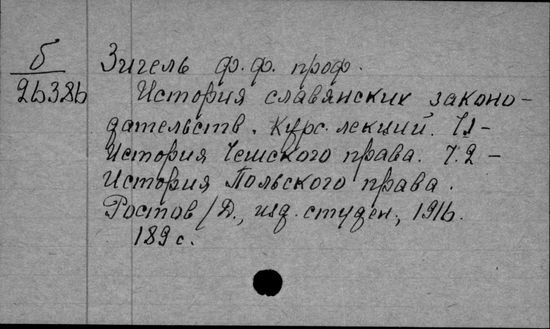 б
26386
Зигель Ф.Ф. проф.
История славянских законо-
дательств. Курс лекций. Ч.1 -
История Чешского права. Ч.2 -
История Польского права.
Ростов/Д., изд. студен., 1916.
189 с.